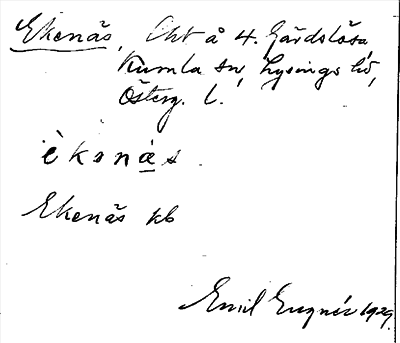 Ekenäs, Cht å 4. Gärdslösa
Kumla sn, Lysings hd,
Österg. l.
èkenás.
Ekenäs kb
Emil 1929.